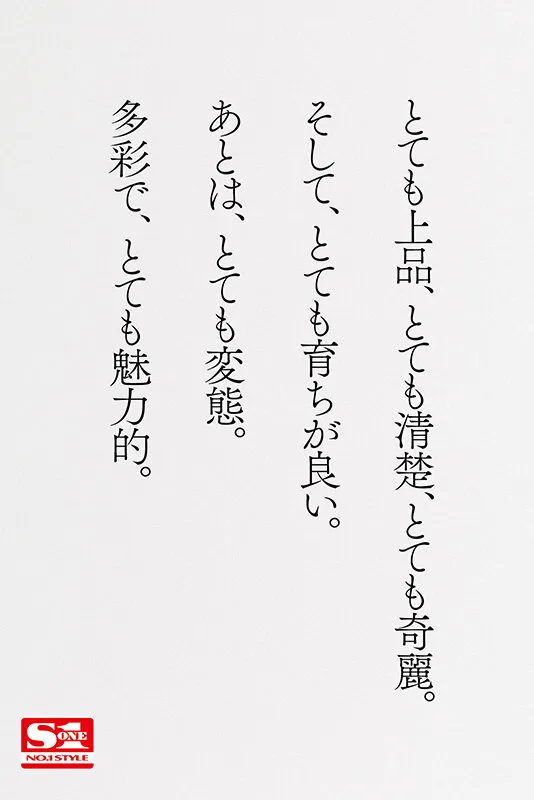 とても上品、とても清楚、とても奇麗。
そして、とても育ちが良い。
あとは、とても変態。
多彩で、とても魅力的。
S1
ONE
NO.1 STYLE